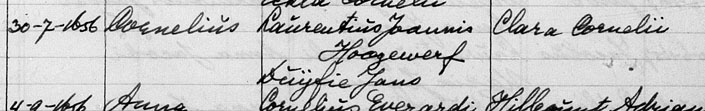 Cornelii
30-7-1656 Cornelius Laurentius Joannis Clara Cornelii
Hoogewerf
Duijfie Jans
4-9-1656 Anna Cornelius Everardi Hillegunt Adrian